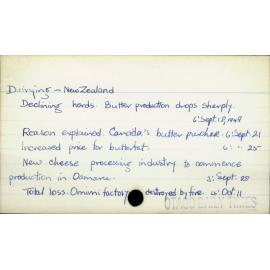 Dairying - New Zealand
Declining herds. Butter production drops sharply.
6: Sept. 18, 1949
Reason explained. Canada's butter purchase. 6: Sept 21
Increased price for butterfat. 4: " 25
New cheese processing industry to commence
production in Oamaru. 3: Sept. 28
Total loss. Omimi factory destroyed by fire. 4: Oct. 11
OTAGO DAILY TIMES